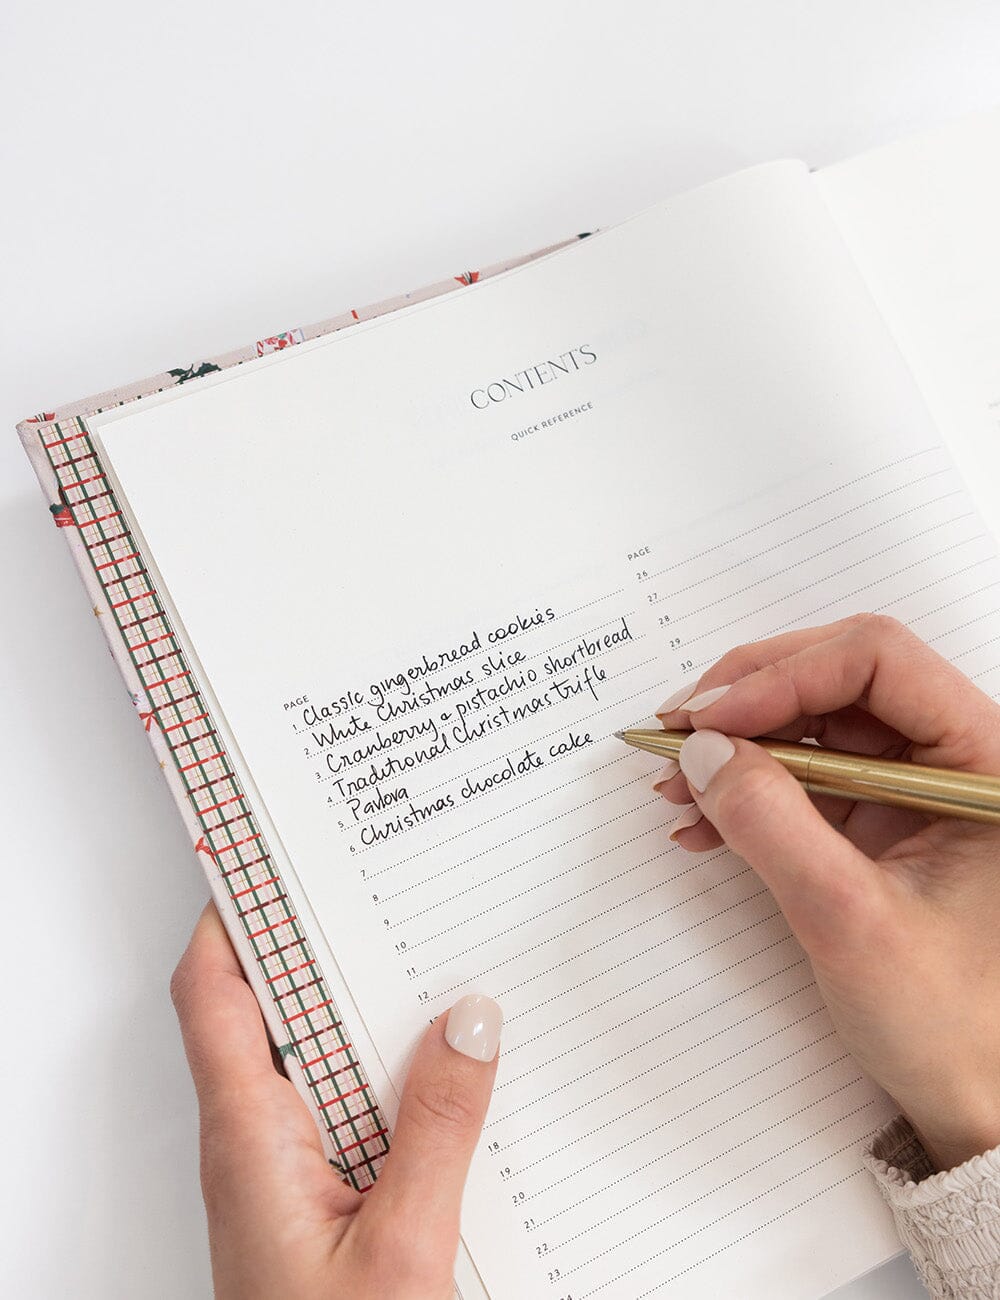 CONTENTS
QUICK REFERENCE
PAGE
1 Classic gingerbread cookies
2 White Christmas slice
3 Cranberry & pistachio shortbread
4 Traditional Christmas trifle
5 Pavlova
6 Christmas chocolate cake
7
8
9
10
11
12
18
19
20
21
22
23
24
PAGE
26
27
28
29
30